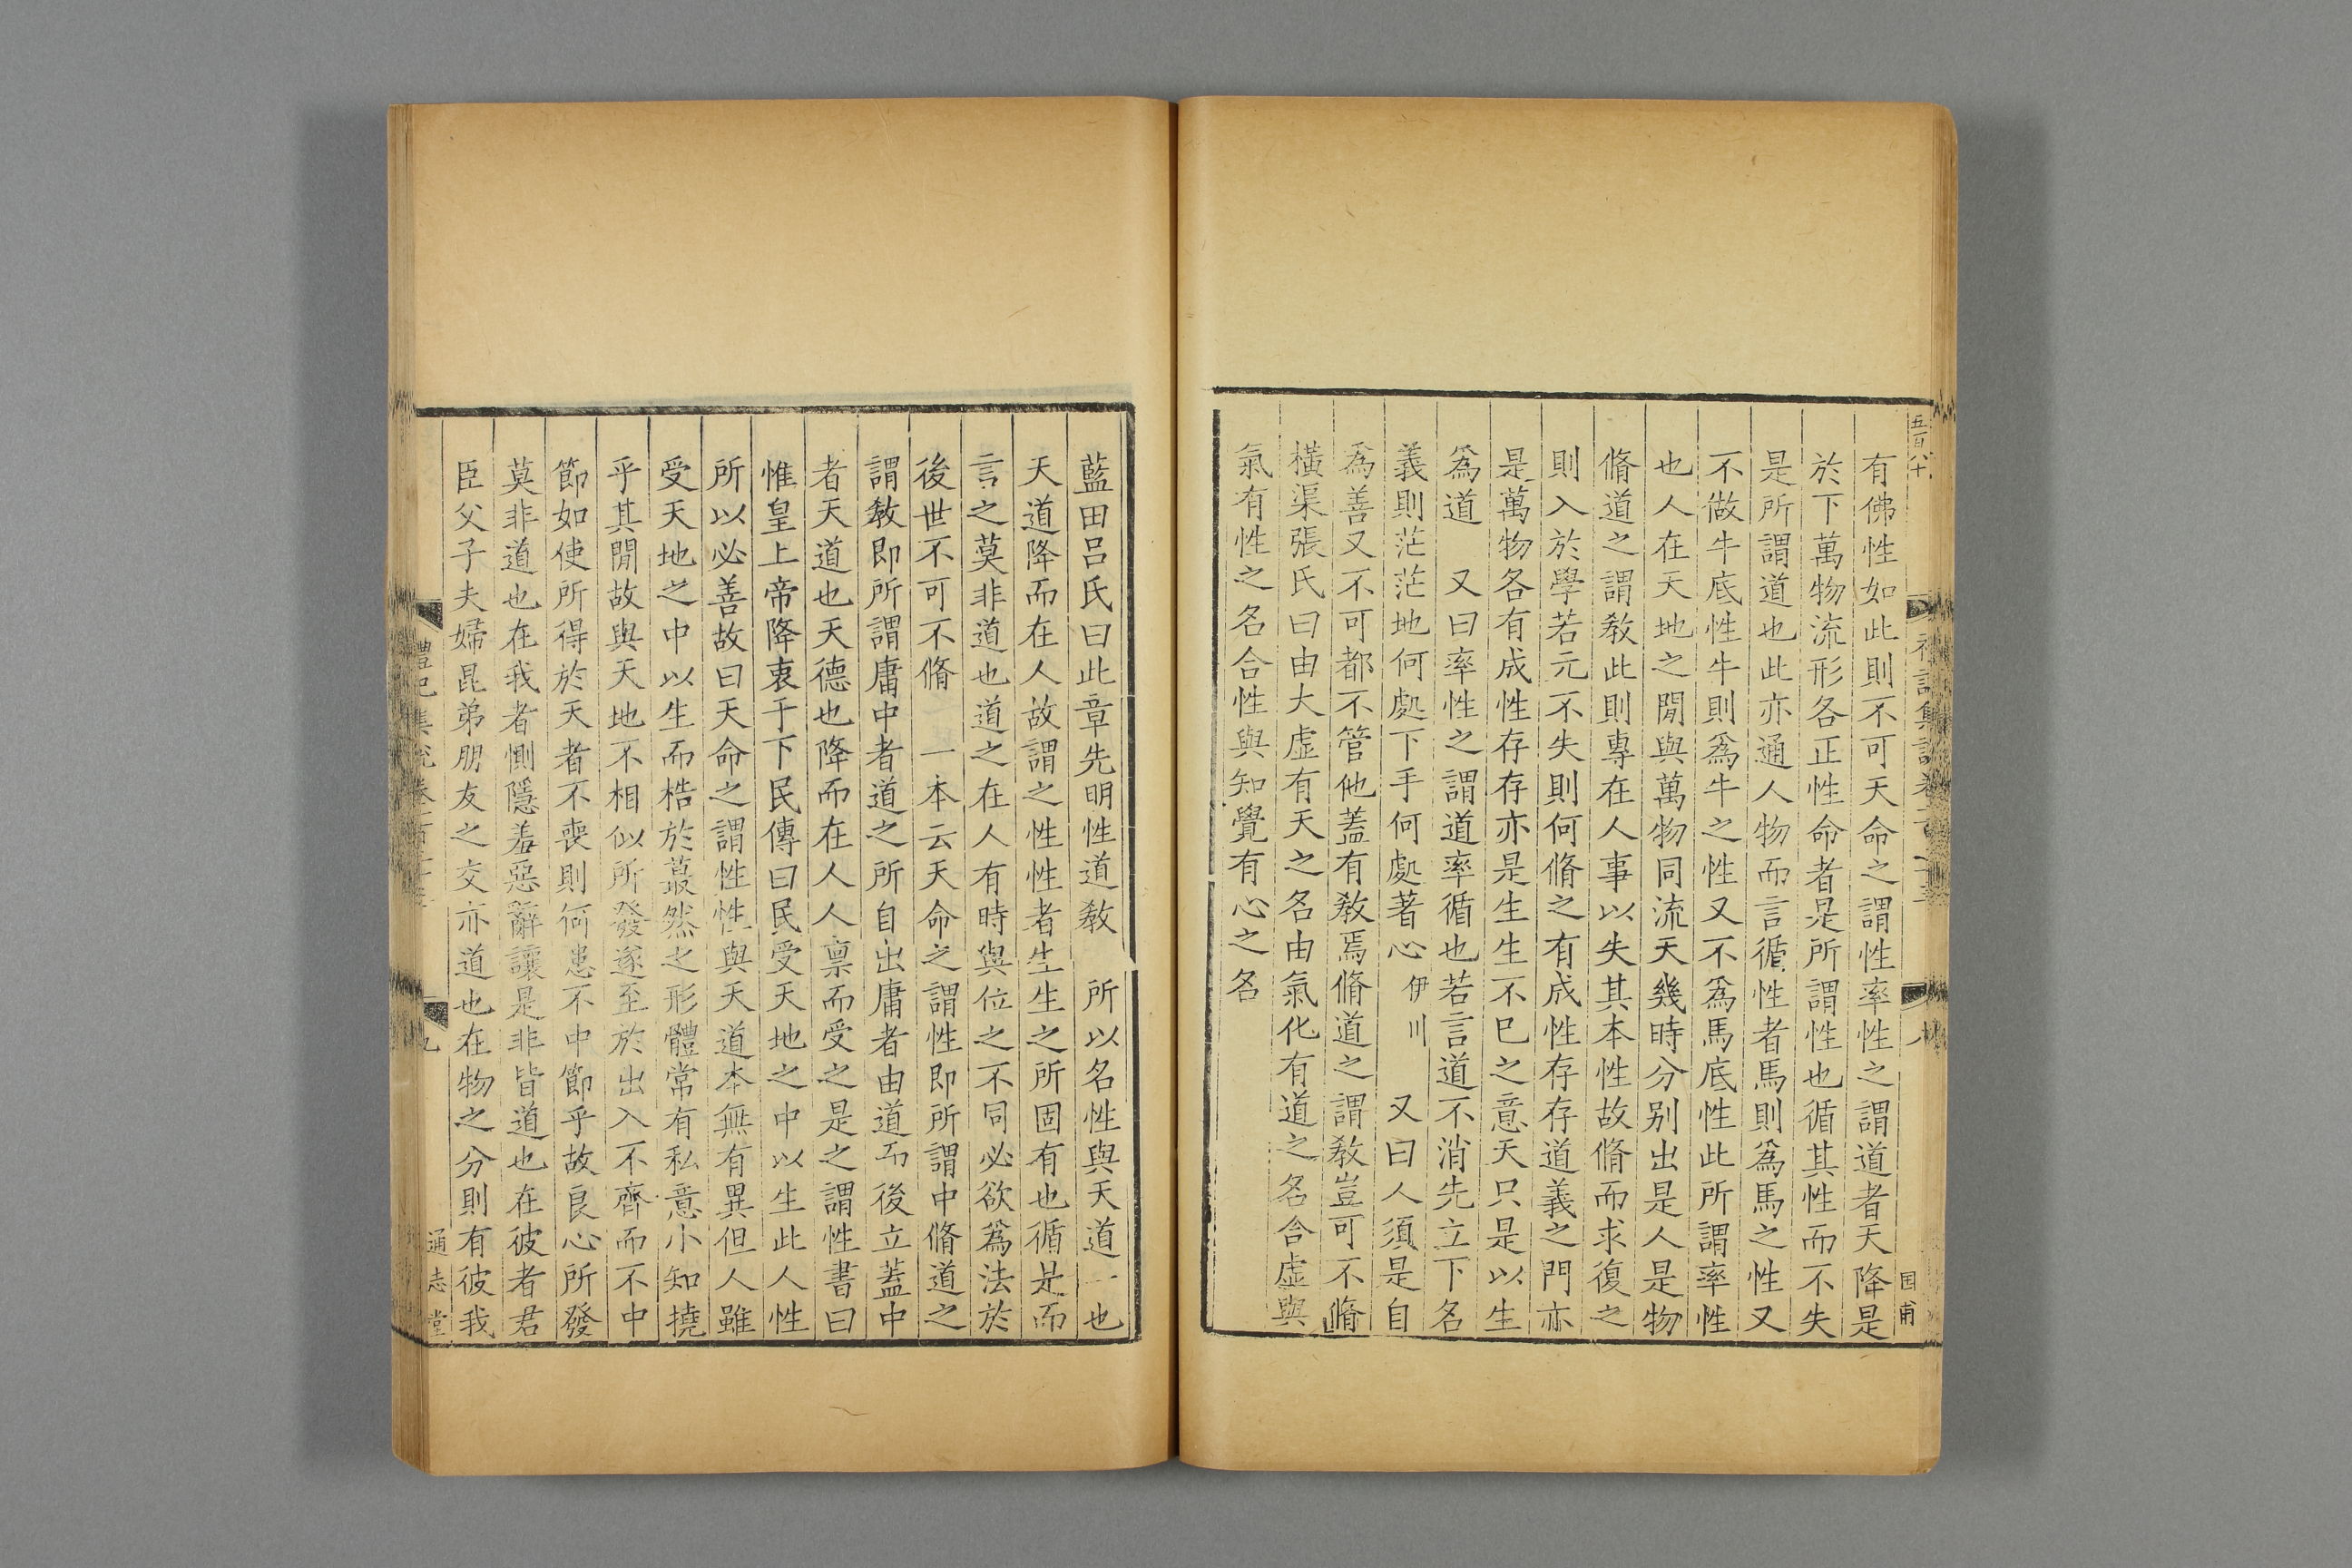 五百八十
有佛性如此則不可天命之謂性率性之謂道者天降是
於下萬物流形各正性命者是所謂性也循其性而不失
是所謂道也此亦通人物而言循性者馬則爲馬之性又
不做牛底性牛則爲牛之性又不爲馬底性此所謂率性
也人在天地之閒與萬物同流天幾時分别出是人是物
脩道之謂敎此則專在人事以失其本性故脩而求復之
則入於學若元不失則何脩之有成性存存道義之門亦
是萬物各有成性存存亦是生生不已之意天只是以生
爲道　又曰率性之謂道率循也若言道不消先立下名
義則茫茫地何處下手何處著心伊川　又曰人須是自
爲善又不可都不管他蓋有敎焉脩道之謂敎豈可不脩
橫渠張氏曰由大虛有天之名由氣化有道之名合虛與
氣有性之名合性與知覺有心之名
藍田呂氏曰此章先明性道敎　所以名性與天道一也
天道降而在人故謂之性性者生生之所固有也循是而
言之莫非道也道之在人有時與位之不同必欲爲法於
後世不可不脩　一本云天命之謂性即所謂中脩道之
謂敎即所謂庸中者道之所自出庸者由道而後立蓋中
者天道也天德也降而在人人禀而受之是之謂性書曰
惟皇上帝降衷于下民傳曰民受天地之中以生此人性
所以必善故曰天命之謂性性與天道本無有異但人雖
受天地之中以生而梏於蕞然之形體常有私意小知撓
乎其閒故與天地不相似所發遂至於出入不齊而不中
節如使所得於天者不喪則何患不中節乎故良心所發
莫非道也在我者惻隱羞惡辭讓是非皆道也在彼者君
臣父子夫婦昆弟朋友之交亦道也在物之分則有彼我
九
通志堂